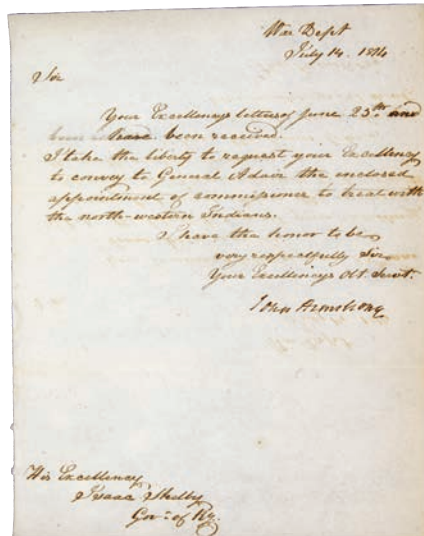 War Dept
July 14. 1814
Sir
Your Excellencys letters of June 25th and
have been received.
I take the liberty to request your Excellency
to convey to General Adair the enclosed
appointment of commissioner to treat with
the north-western Indians.
I have the honor to be
very respectfully Sir
Your Excellencys Obt. Servt.
John Armstrong
His Excellency
Isaac Shelby
Govr. of Ky.